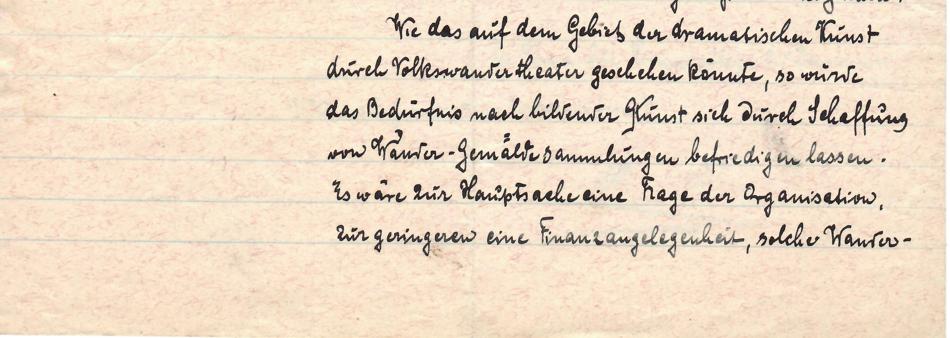 Wie das auf dem Gebiet der dramatischen Kunst
durch Volkswandertheater geschehen könnte, so würde
das Bedürfnis nach bildender Kunst sich durch Schaffung
von Wander-Gemäldesammlungen befriedigen lassen.
Es wäre zur Hauptsache eine Frage der Organisation,
zur geringeren eine Finanzangelegenheit, solche Wander-